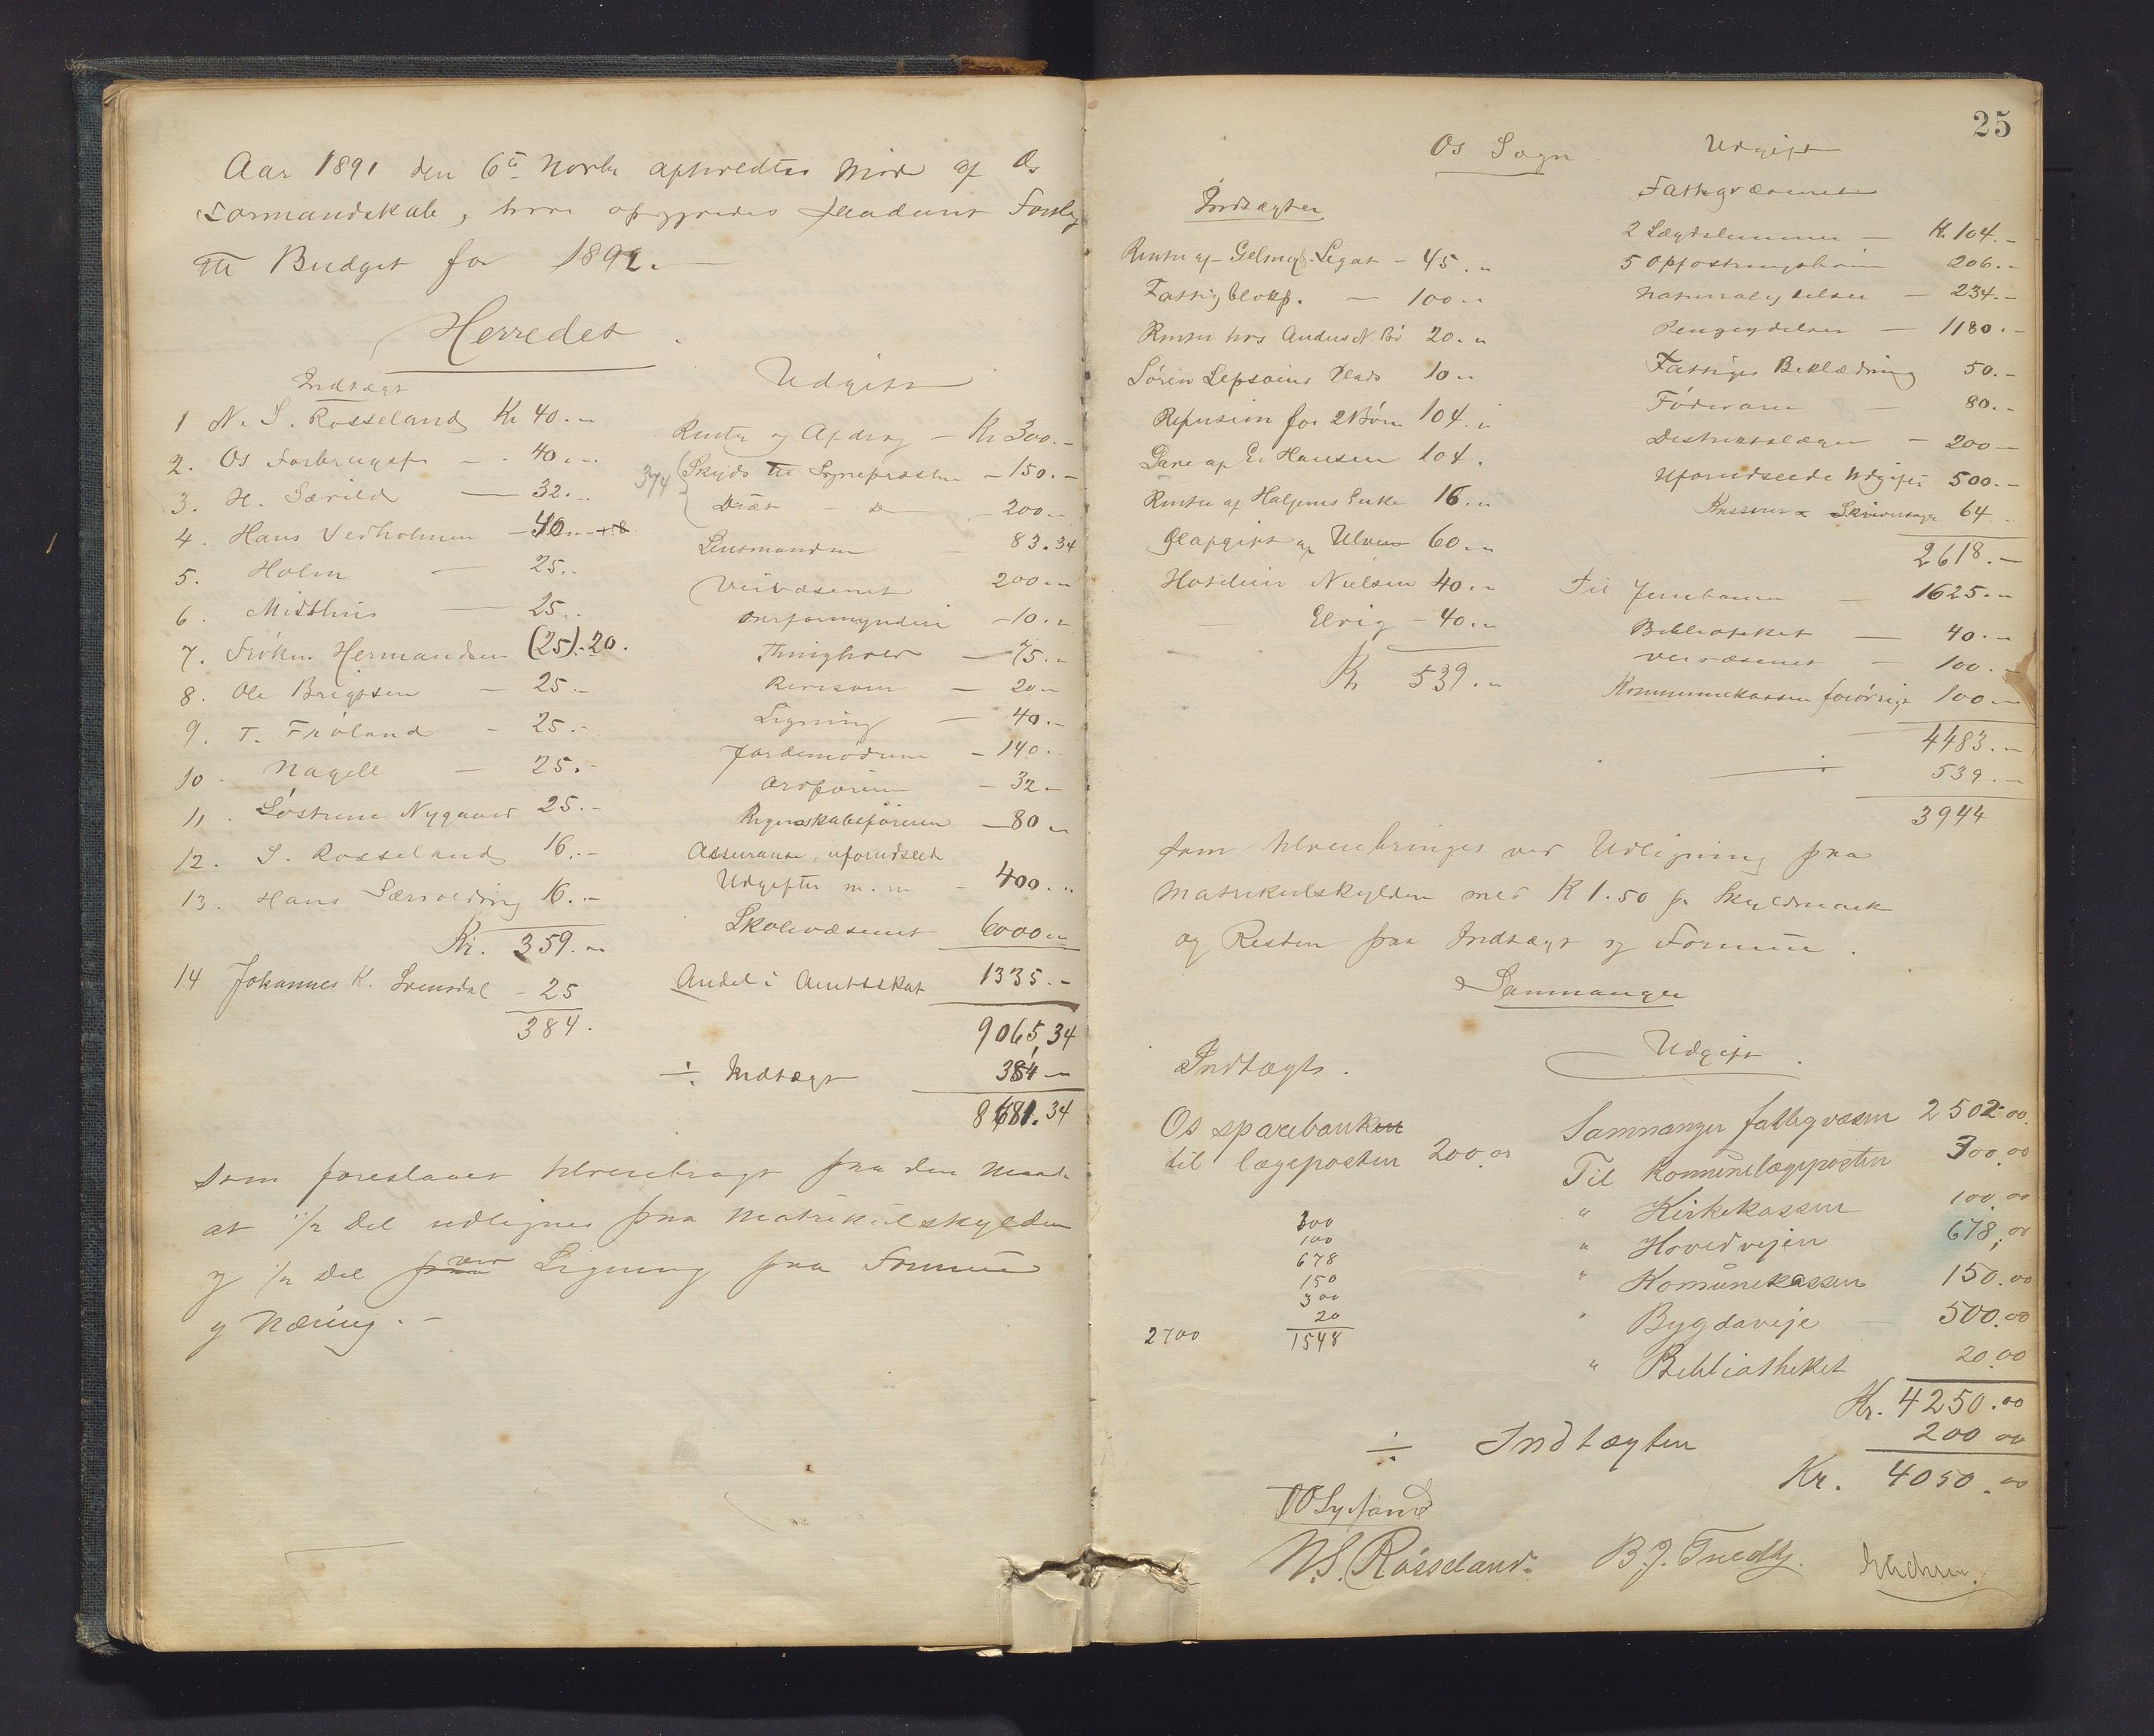 Aar 1891 den 6te Novbr afholdtes Møde af Os
Formandskab, hvor opgjordes saadant Forslag
til Budget for 1892.
Herredet
Indtægt
1 N. S. Rosseland Kr 40.-
2. Os Forbrugsf - 40.-
3. H. Særild - 32.-
4. Hans Vedholmen - 40.-
5. Holm - 25.-
6. Midthus - 25.-
7. Frøken Hermandsen (25).-20.
8. Ole Brigtsen - 25.-
9. T. Frøland - 25.-
10. Nagell - 25.-
11. Søstrene Nygaard 25.-
12. S. Rosseland 16.-
13. Hans Særvolding 16.-
Kr. 359.-
14 Johannes K. Svensdal - 25
384.
Udgift
Renter og Afdrag - Kr 300.-
374
Skyds til Sognepresten - 150.-
Diæt - Do - 200.-
Lensmanden - 83.34
Veivæsenet 200.-
Overformynderi - 10.-
Thinghold - 75.-
Revision - 20.-
Ligning - 40.-
Jordemødrene - 140.-
Ordføreren - 32.-
Regnskabsføreren - 80.-
Assurance, uforudseede
Udgifter m.m - 400.-
Skolevæsenet 6000.-
Andel i Amtsskat 1335.-
9065,34
÷ Indtægt 384.-
8681.34
som foreslaaes tilveiebragt paa den Maade
at 1/2 Del udlignes paa Matrikulskylden
og 1/2 Del paa ved Ligning paa Formue
og Næring.-
25
Os Sogn
Indtægter
Renter af Gelmuyd. Legat - 45.-
Fattigblokk. - 100.-
Renter hos Anders N. Bø 20.-
Søren Lepsøens Plads 10.-
Refusion for 2 Børn 104.-
Gave af E. Hansen 104.
Renter af Halfens Enke 16.-
Afgift af Ulven 60.-
Hoteleier Nielsen 40.-
- Elvig - 40.-
Kr 539.-
Udgift
Fattigvæsenet
2 Lægdslemmer - Kr. 104.-
5 Opfostringsbørn 206.-
Naturalydelser - 234.-
Pengeydelser - 1180.-
Fattiges Beklædning 50.-
Fødevare - 80.-
Destriktslægen - 200.-
Uforudseede Udgifter 500.-
64.-
2618.-
Til Jernbanen - 1625.-
Bibliotheket - 40.-
Veivæsenet - 100.-
Kommunekassen forøvrigt 100.-
4483.-
÷ 539.-
3944
som tilveiebringes ved Udligning paa
Matrikulskylden med K 1.50 pr Skyldmark
og Resten paa Indtægt og Formue.
Samnanger
Indtægt.
Os sparebanken
til lægeposten 200.00
300
100
678
150
300
20
1548
2700
Udgift.
Samnanger fattigvæsen 2502.00
Til Komunelægeposten 300.00
" Kirkekassen 100.00
" Hovedvejen 678,00
" Komunekassen 150.00
" Bygdaveje - 500.00
" Bibliotheket 20.00
Kr. 4250.00
÷ Indtægten 200 00
Kr. 4050.00
N.S. Rosseland.